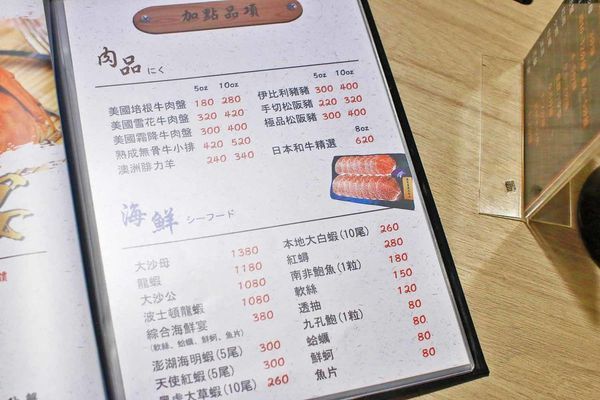 加點品項
肉品 にく
5oz 10oz
美國培根牛肉盤 180 280
美國雪花牛肉盤 320 420
美國霜降牛肉盤 300 400
熟成無骨牛小排 420 520
澳洲腓力羊 240 340
5oz 10oz
伊比利豬豬 300 400
手切松阪豬 220 320
極品松阪豬 300 400
8oz
日本和牛精選 620
海鮮 シーフード
大沙母 1380
龍蝦 1180
大沙公 1080
波士頓龍蝦 1080
綜合海鮮宴 380
(軟絲、蛤蠣、鮮蚵、魚片)
澎湖海明蝦(5尾) 300
天使紅蝦(5尾) 300
黑虎大草蝦(10尾) 260
本地大白蝦(10尾) 260
紅蟳 280
南非鮑魚(1粒) 180
軟絲 150
透抽 120
九孔鮑(1粒) 80
蛤蠣 80
鮮蚵 80
魚片 80